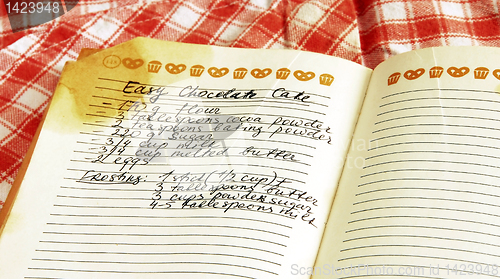 Easy Chocolate Cake
flour
3 tablespoons cocoa powder
2 teaspoons baking powder
sugar
3/4 cup milk
3/4 cup melted butter
2 eggs
Frosting: 1 stick (1/2 cup)
3 tablespoons butter
3 cups powder sugar
4-5 tablespoons milk
11523974